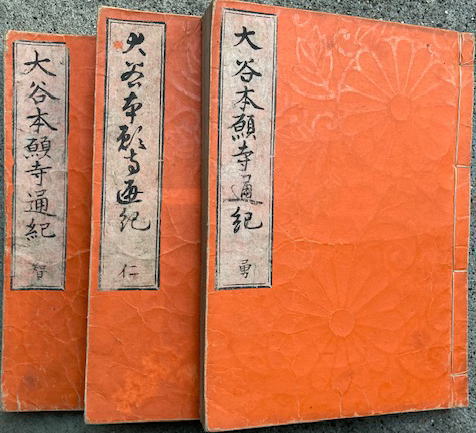 大谷本願寺通紀
勇
大谷本願寺通紀
仁
大谷本願寺通紀
智